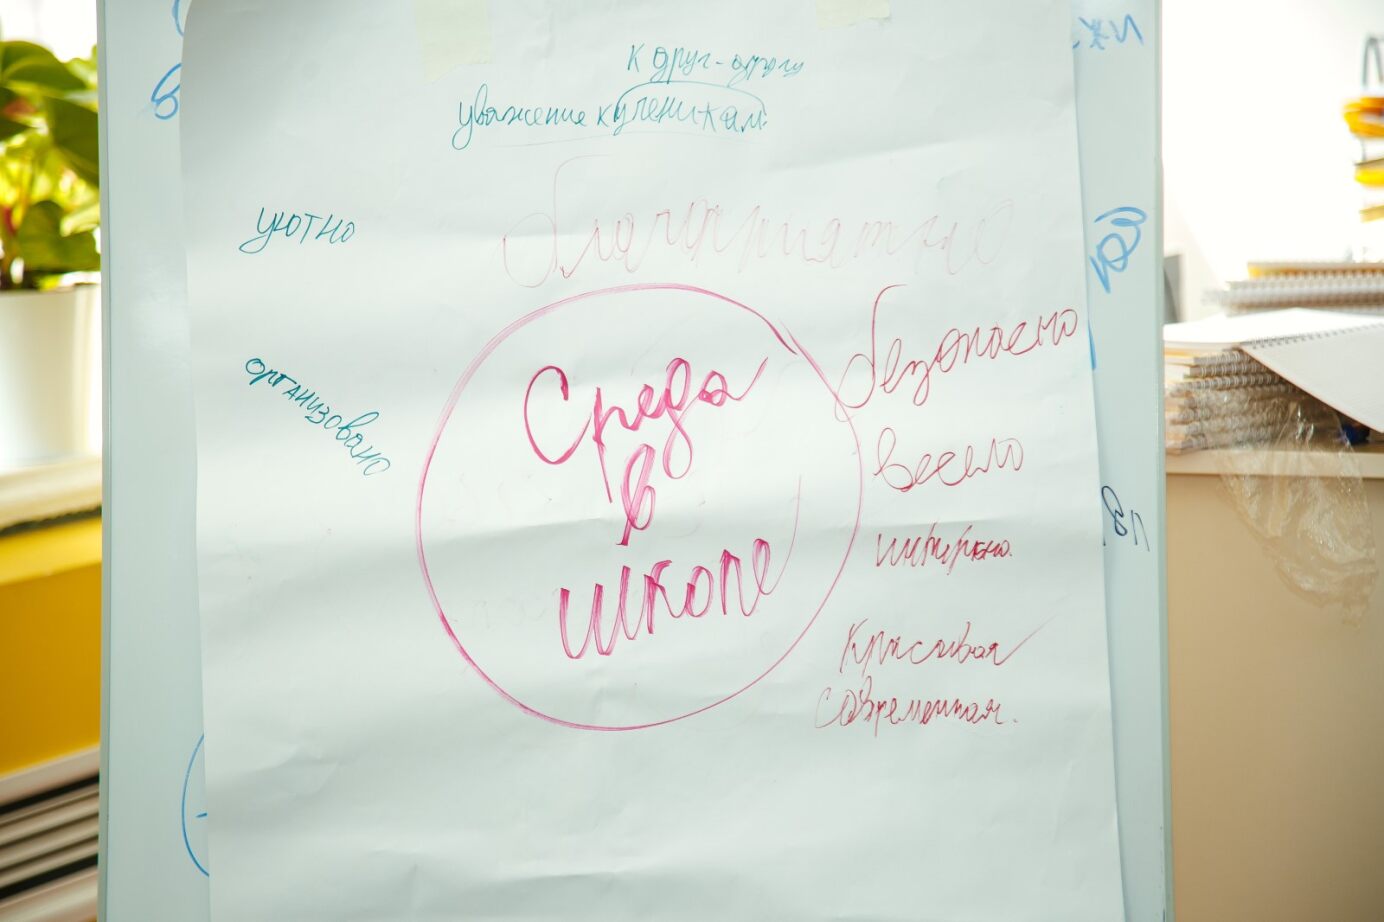 к друг-другу
уважение к ученикам
благоприятно
уютно
безопасно
организовано
Среда
в
школе
весело
Красивая
современная.